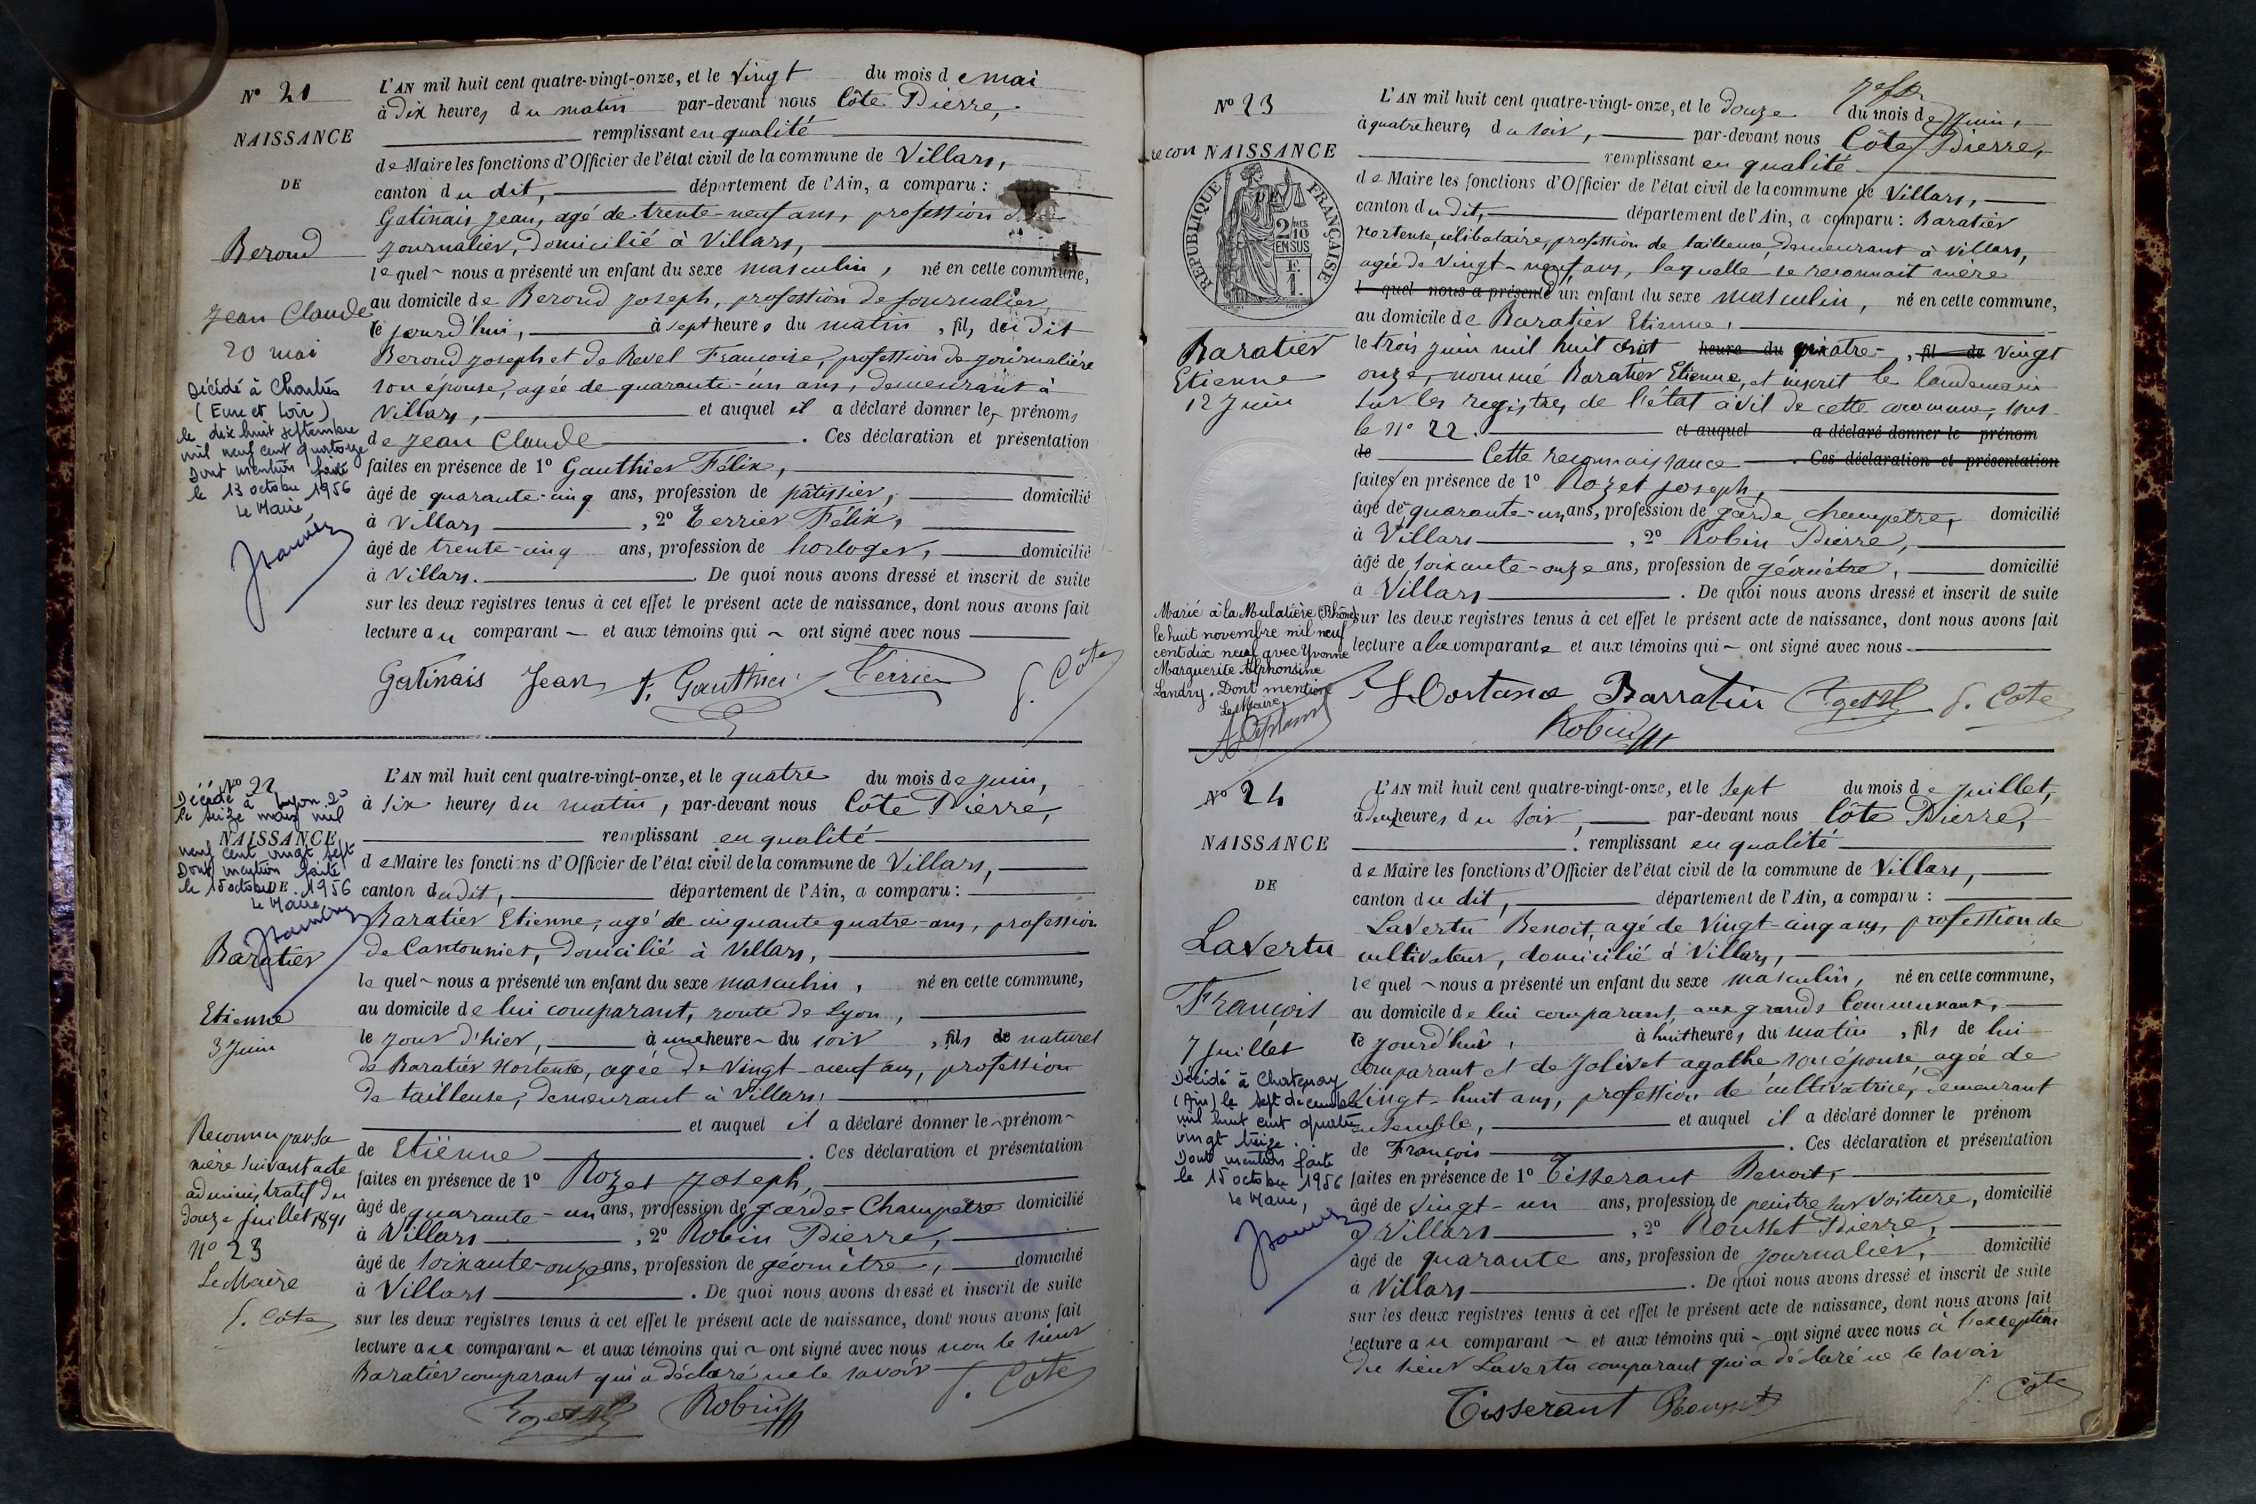 N° 21
NAISSANCE
DE
Beroud
Jean Claude
20 mai
Décédé à Chartres
(Eure et Loir)
le dix huit septembre
mil neuf cent quatorze
Dont mention faite
le 13 octobre 1956
Le Maire,
L'AN mil huit cent quatre-vingt-onze, et le vingt du mois de mai
à dix heures du matin par-devant nous Côte Pierre,
remplissant en qualité
de Maire les fonctions d'Officier de l'état civil de la commune de Villars,
canton du dit, département de l'Ain, a comparu :
Gatinais Jean, agé de trente-neuf ans, profession de
journalier, domicilié à Villars,
lequel nous a présenté un enfant du sexe masculin, né en cette commune,
au domicile de Beroud Joseph, profession de journalier
ce jourd'hui, à sept heures du matin, fils du dit
Beroud Joseph et de Revel Françoise, profession de journalière
son épouse, agée de quarante-un ans, demeurant à
Villars, et auquel il a déclaré donner les prénoms
de Jean Claude. Ces déclaration et présentation
faites en présence de 1° Gauthier Félix,
âgé de quarante-cinq ans, profession de pâtissier, domicilié
à Villars, 2° Terrier Félix,
âgé de trente-cinq ans, profession de horloger, domicilié
à Villars. De quoi nous avons dressé et inscrit de suite
sur les deux registres tenus à cet effet le présent acte de naissance, dont nous avons fait
lecture au comparant et aux témoins qui ont signé avec nous
Gatinais Jean F. Gauthier Terrier P. Côte
N° 22
NAISSANCE
DE
Décédé à Lyon 2e
le seize mars mil
neuf cent vingt sept
Dont mention faite
le 15 octobre 1956
Le Maire
Baratier
Etienne
3 Juin
Reconnu par sa
mère suivant acte
administratif du
douze juillet 1891
N° 23
Le Maire
P. Côte
L'AN mil huit cent quatre-vingt-onze, et le quatre du mois de juin,
à six heures du matin, par-devant nous Côte Pierre,
remplissant en qualité
de Maire les fonctions d'Officier de l'état civil de la commune de Villars,
canton du dit, département de l'Ain, a comparu :
Baratier Etienne, agé de cinquante quatre-ans, profession
de Cantonnier, domicilié à Villars,
lequel nous a présenté un enfant du sexe masculin, né en cette commune,
au domicile de lui comparant, route de Lyon,
le jour d'hier, à une heure du soir, fils de naturel
de Baratier Hortense, agée de vingt-neuf ans, profession
de tailleuse, demeurant à Villars,
et auquel il a déclaré donner le prénom
de Etienne. Ces déclaration et présentation
faites en présence de 1° Rozet Joseph,
âgé de quarante-un ans, profession de garde-Champetre domicilié
à Villars, 2° Robin Pierre,
âgé de soixante-onze ans, profession de géomètre, domicilié
à Villars. De quoi nous avons dressé et inscrit de suite
sur les deux registres tenus à cet effet le présent acte de naissance, dont nous avons fait
lecture au comparant et aux témoins qui ont signé avec nous non le sieur
Baratier comparant qui a déclaré ne le savoir
Rozet Robin P. Côte
N° 23
recon NAISSANCE
DE
RÉPUBLIQUE FRANÇAISE
2/10 EN SUS
Baratier
Etienne
12 Juin
Marié à la Mulatière (Rhône)
le huit novembre mil neuf
cent dix neuf avec Yvonne
Marguerite Alphonsine
Landry. Dont mention
Le Maire
L'AN mil huit cent quatre-vingt-onze, et le douze du mois de juin,
à quatre heures du soir, par-devant nous Côte Pierre,
remplissant en qualité
de Maire les fonctions d'Officier de l'état civil de la commune de Villars,
canton du dit, département de l'Ain, a comparu : Baratier
Hortense, célibataire, profession de tailleuse, demeurant à Villars,
agée de vingt-neuf ans, laquelle se reconnait mere
lequel nous a présenté un enfant du sexe masculin, né en cette commune,
au domicile de Baratier Etienne,
le trois juin mil huit cent heure du quatre-, fil de vingt
onze, nommé Baratier Etienne, et inscrit le lendemain
sur les registres de l'état civil de cette commune, sous
le N° 22. et auquel a déclaré donner le prénom
de Cette reconnaissance. Ces déclaration et présentation
faites en présence de 1° Rozet Joseph,
âgé de quarante-un ans, profession de garde champetre, domicilié
à Villars, 2° Robin Pierre,
âgé de soixante-onze ans, profession de géomètre, domicilié
à Villars. De quoi nous avons dressé et inscrit de suite
sur les deux registres tenus à cet effet le présent acte de naissance, dont nous avons fait
lecture à la comparante et aux témoins qui ont signé avec nous
Barratier P. Côte
Robin
N° 24
NAISSANCE
DE
Lavertu
François
7 Juillet
Décédé à Chatenay
(Ain) le sept décembre
mil huit cent quatre
vingt treize.
Dont mention faite
le 15 octobre 1956
Le Maire,
L'AN mil huit cent quatre-vingt-onze, et le sept du mois de juillet,
à deux heures du soir, par-devant nous Côte Pierre,
remplissant en qualité
de Maire les fonctions d'Officier de l'état civil de la commune de Villars,
canton du dit, département de l'Ain, a comparu :
Lavertu Benoit, agé de vingt-cinq ans, profession de
cultivateur, domicilié à Villars,
lequel nous a présenté un enfant du sexe masculin, né en cette commune,
au domicile de lui comparant, aux grands Communaux,
ce jourd'hui, à huit heures du matin, fils de lui
comparant et de Jolivet agathe son épouse, agée de
vingt-huit ans, profession de cultivatrice, demeurant
ensemble, et auquel il a déclaré donner le prénom
de François. Ces déclaration et présentation
faites en présence de 1° Tisserant Benoit,
âgé de vingt-un ans, profession de peintre sur voiture, domicilié
à Villars, 2° Rousset Pierre,
âgé de quarante ans, profession de journalier, domicilié
à Villars. De quoi nous avons dressé et inscrit de suite
sur les deux registres tenus à cet effet le présent acte de naissance, dont nous avons fait
lecture au comparant et aux témoins qui ont signé avec nous à l'exception
du sieur Lavertu comparant qui a déclaré ne le savoir
Tisserant Rousset P. Côte